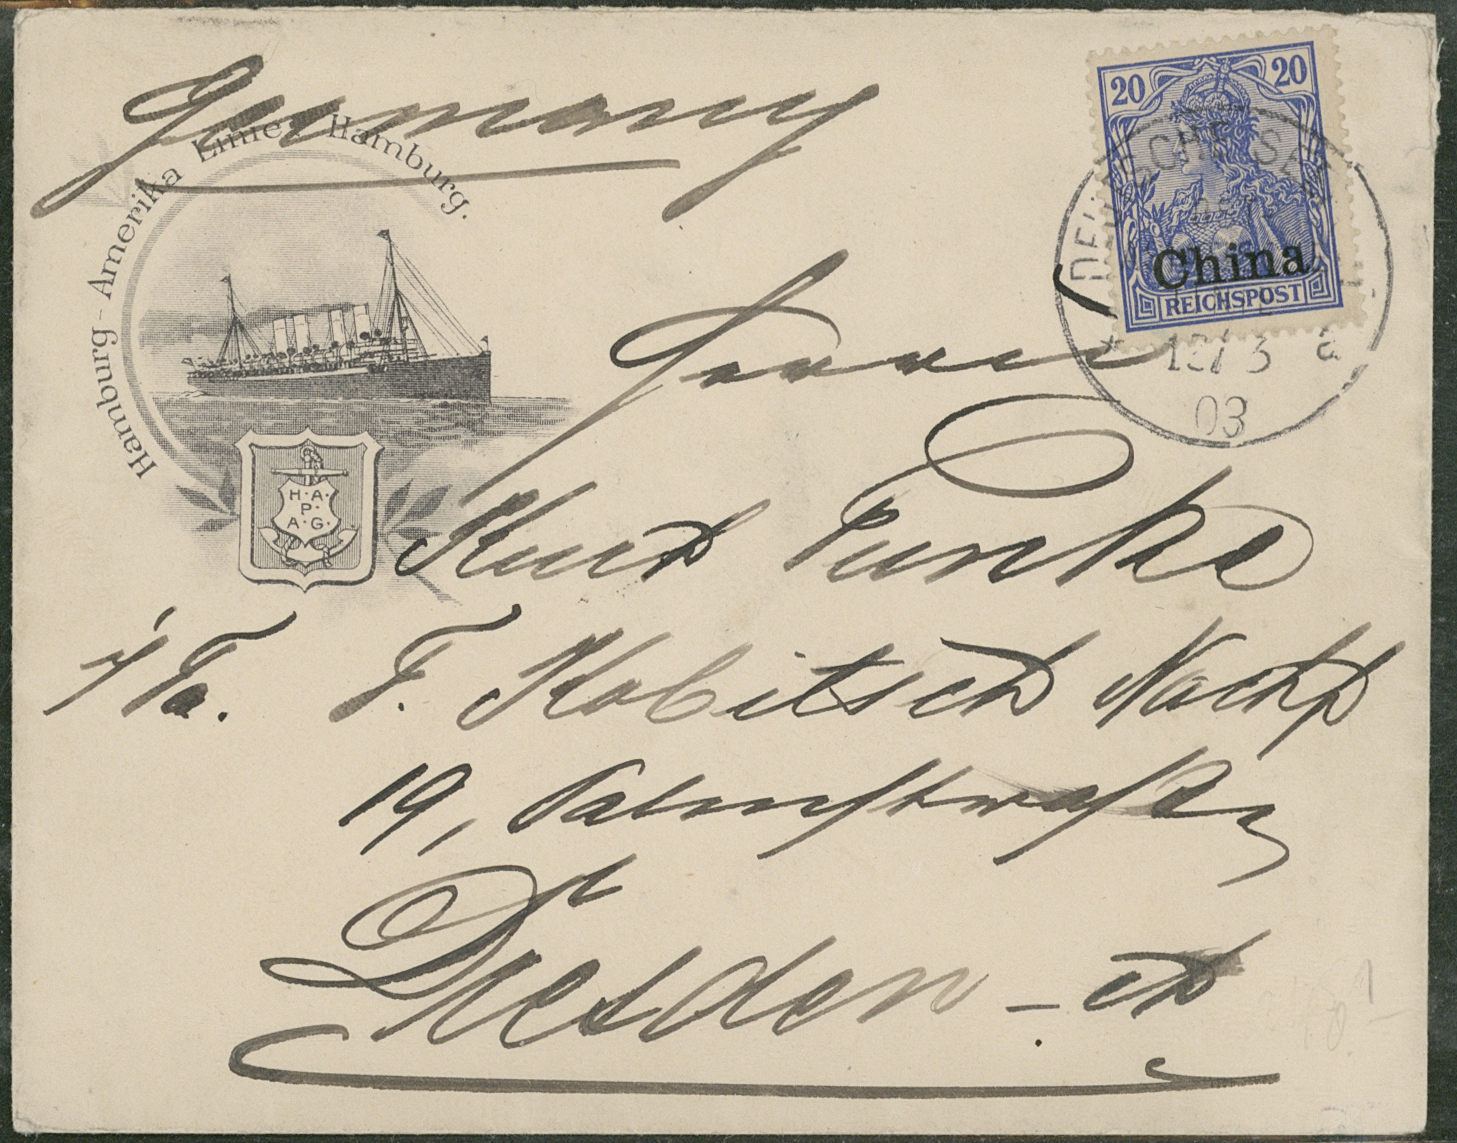 Germany
Hamburg-Amerika Linie, Hamburg.
H·A·
P·
A·G·
20 20
China
REICHSPOST
DEUTSCHE SEE
* 13/3 a
03
Herrn
Kurt Funke
i/Fa. F. Kobitsch Nachf
19,
Dresden - A